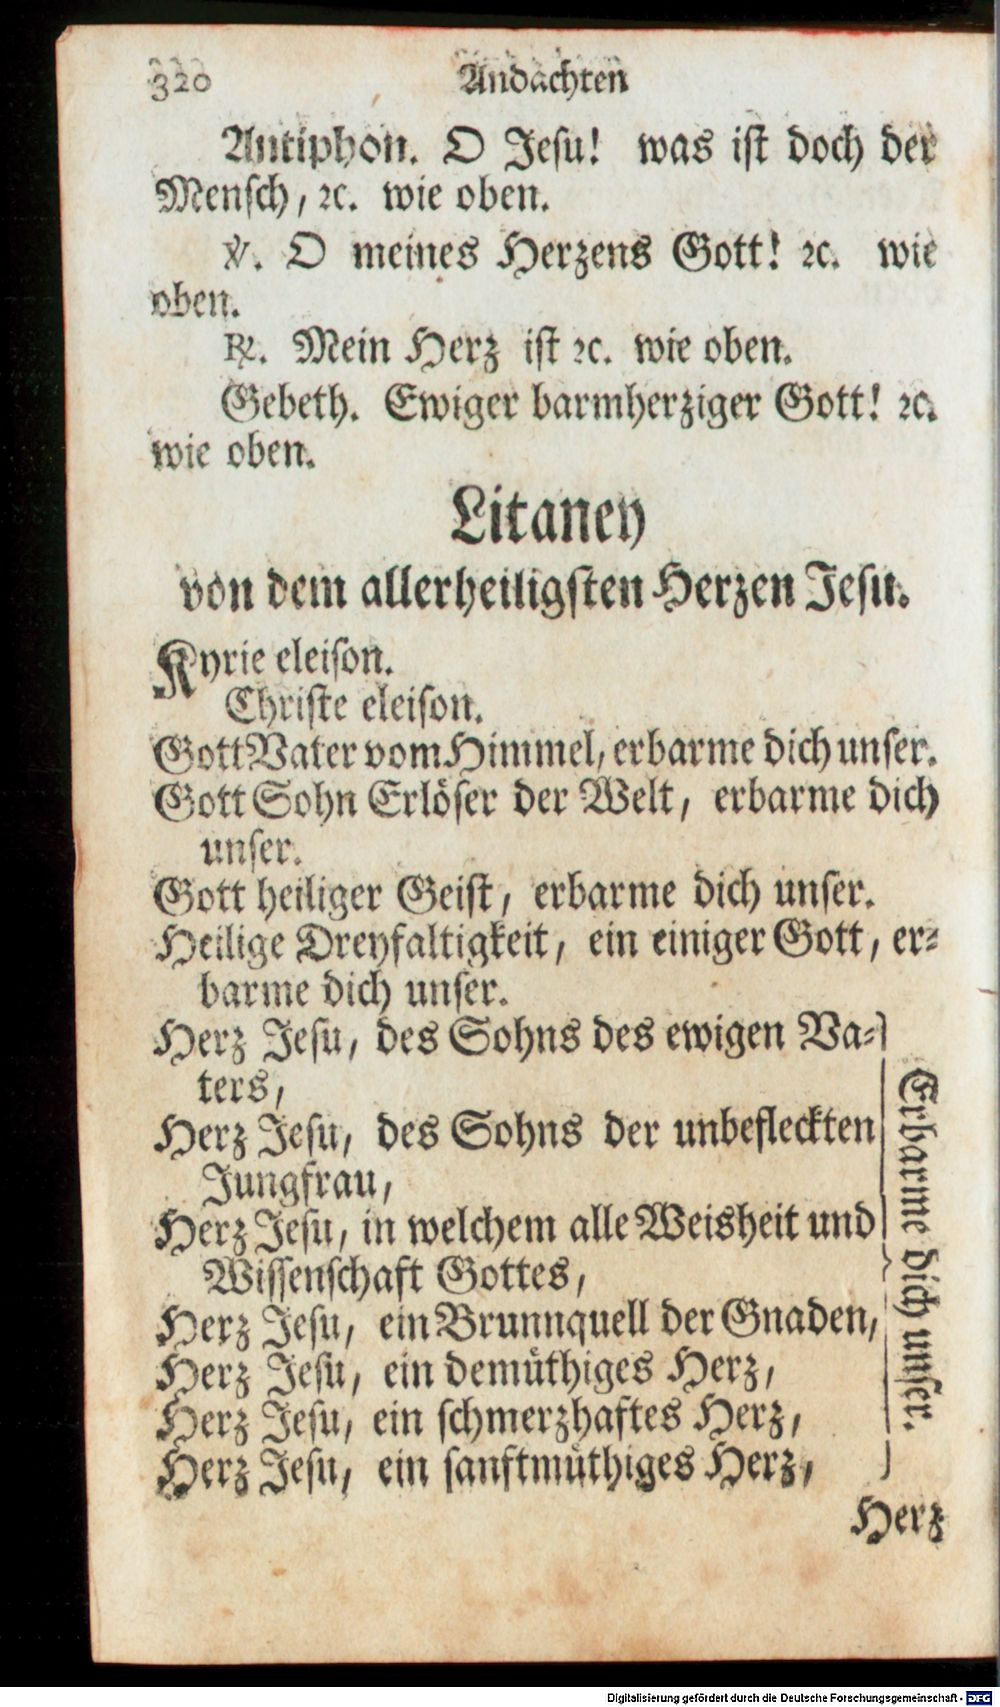 320 Andachten
Antiphon. O Jesu! was ist doch der
Mensch, ꝛc. wie oben.
℣. O meines Herzens Gott! ꝛc. wie
oben.
℟. Mein Herz ist ꝛc. wie oben.
Gebeth. Ewiger barmherziger Gott! ꝛc.
wie oben.
Litaney
von dem allerheiligsten Herzen Jesu.
Kyrie eleison.
Christe eleison.
Gott Vater vom Himmel, erbarme dich unser.
Gott Sohn Erlöser der Welt, erbarme dich
unser.
Gott heiliger Geist, erbarme dich unser.
Heilige Dreyfaltigkeit, ein einiger Gott, er-
barme dich unser.
Herz Jesu, des Sohns des ewigen Va-
ters,
Herz Jesu, des Sohns der unbefleckten
Jungfrau,
Herz Jesu, in welchem alle Weisheit und
Wissenschaft Gottes,
Herz Jesu, ein Brunnquell der Gnaden,
Herz Jesu, ein demüthiges Herz,
Herz Jesu, ein schmerzhaftes Herz,
Herz Jesu, ein sanftmüthiges Herz,
Erbarme dich unser.
Herz
Digitalisierung gefördert durch die Deutsche Forschungsgemeinschaft - DFG